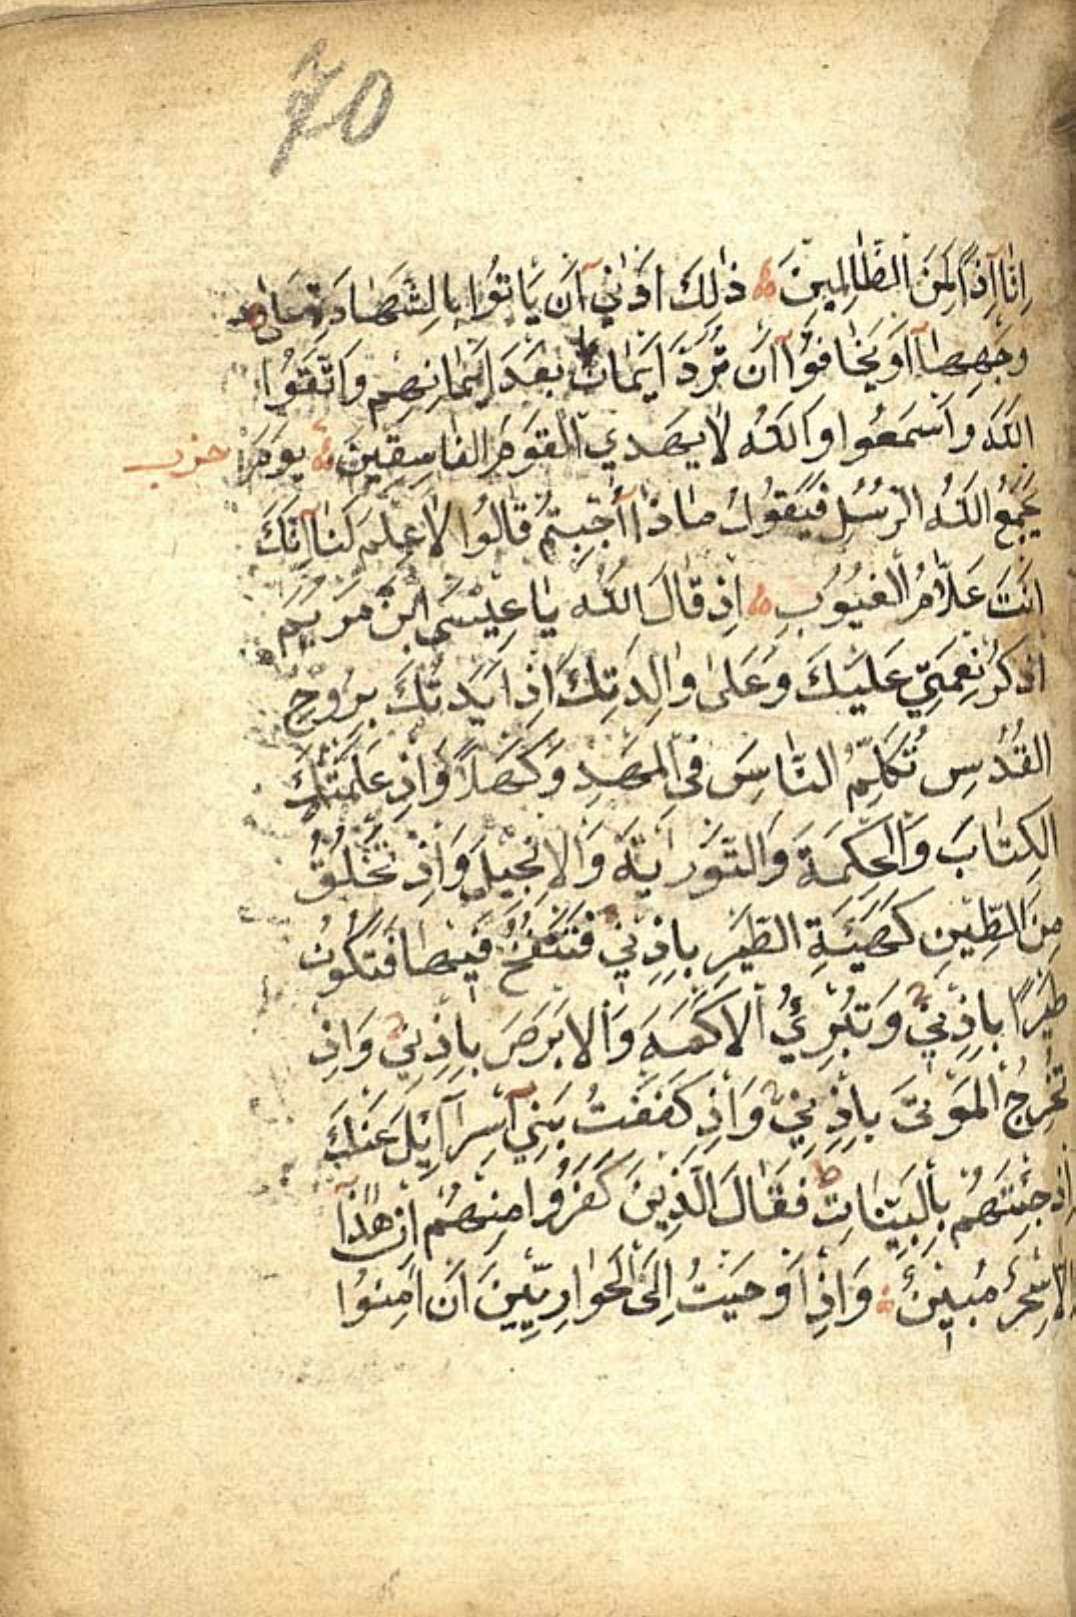 70
اِنَّا اِذًا لَمِنَ الظَّالِمِينَ ذٰلِكَ اَدْنٰى اَنْ يَاْتُوا بِالشَّهَادَةِ عَلٰى
وَجْهِهَا اَوْ يَخَافُوا اَنْ تُرَدَّ اَيْمَانٌ بَعْدَ اَيْمَانِهِمْ وَاتَّقُوا
اللّٰهَ وَاسْمَعُوا وَاللّٰهُ لَا يَهْدِي الْقَوْمَ الفَاسِقِينَ يَوْمَ
حزب
يَجْمَعُ اللّٰهُ الرُّسُلَ فَيَقُولُ مَاذَا اُجِبْتُمْ قَالُوا لَا عِلْمَ لَنَا اِنَّكَ
اَنْتَ عَلَّامُ الْغُيُوبِ اِذْ قَالَ اللّٰهُ يَا عِيْسَى ابْنَ مَرْيَمَ
اذْكُرْ نِعْمَتِي عَلَيْكَ وَعَلٰى وَالِدَتِكَ اِذْ اَيَّدْتُكَ بِرُوحِ
القُدُسِ تُكَلِّمُ النَّاسَ فِى الْمَهْدِ وَكَهْلًا وَاِذْ عَلَّمْتُكَ
الكِتَابَ وَالْحِكْمَةَ وَالتَّوْرَايةَ وَالْاِنْجِيلَ وَاِذْ تَخْلُقُ
مِنَ الطِّينِ كَهَيْئَةِ الطَّيْرِ بِاِذْنِي فَتَنْفُخُ فِيْهَا فَتَكُونُ
طَيْرًا بِاِذْنِي وَتُبْرِئُ الْاَكْمَهَ وَالْاَبْرَصَ بِاِذْنِي وَاِذْ
تُخْرِجُ الْمَوْتٰى بِاِذْنِي وَاِذْ كَفَفْتُ بَنِي اِسْرَآئِلَ عَنْكَ
اِذْ جِئْتَهُمْ بِالْبَيِّنَاتِ ط فَقَالَ الَّذِينَ كَفَرُوا مِنْهُمْ اِنْ هٰذَا
اِلَّا سِحْرٌ مُبِينٌ وَاِذْ اَوْحَيْتُ اِلَى الْحَوَارِيِّينَ اَنْ اٰمِنُوا